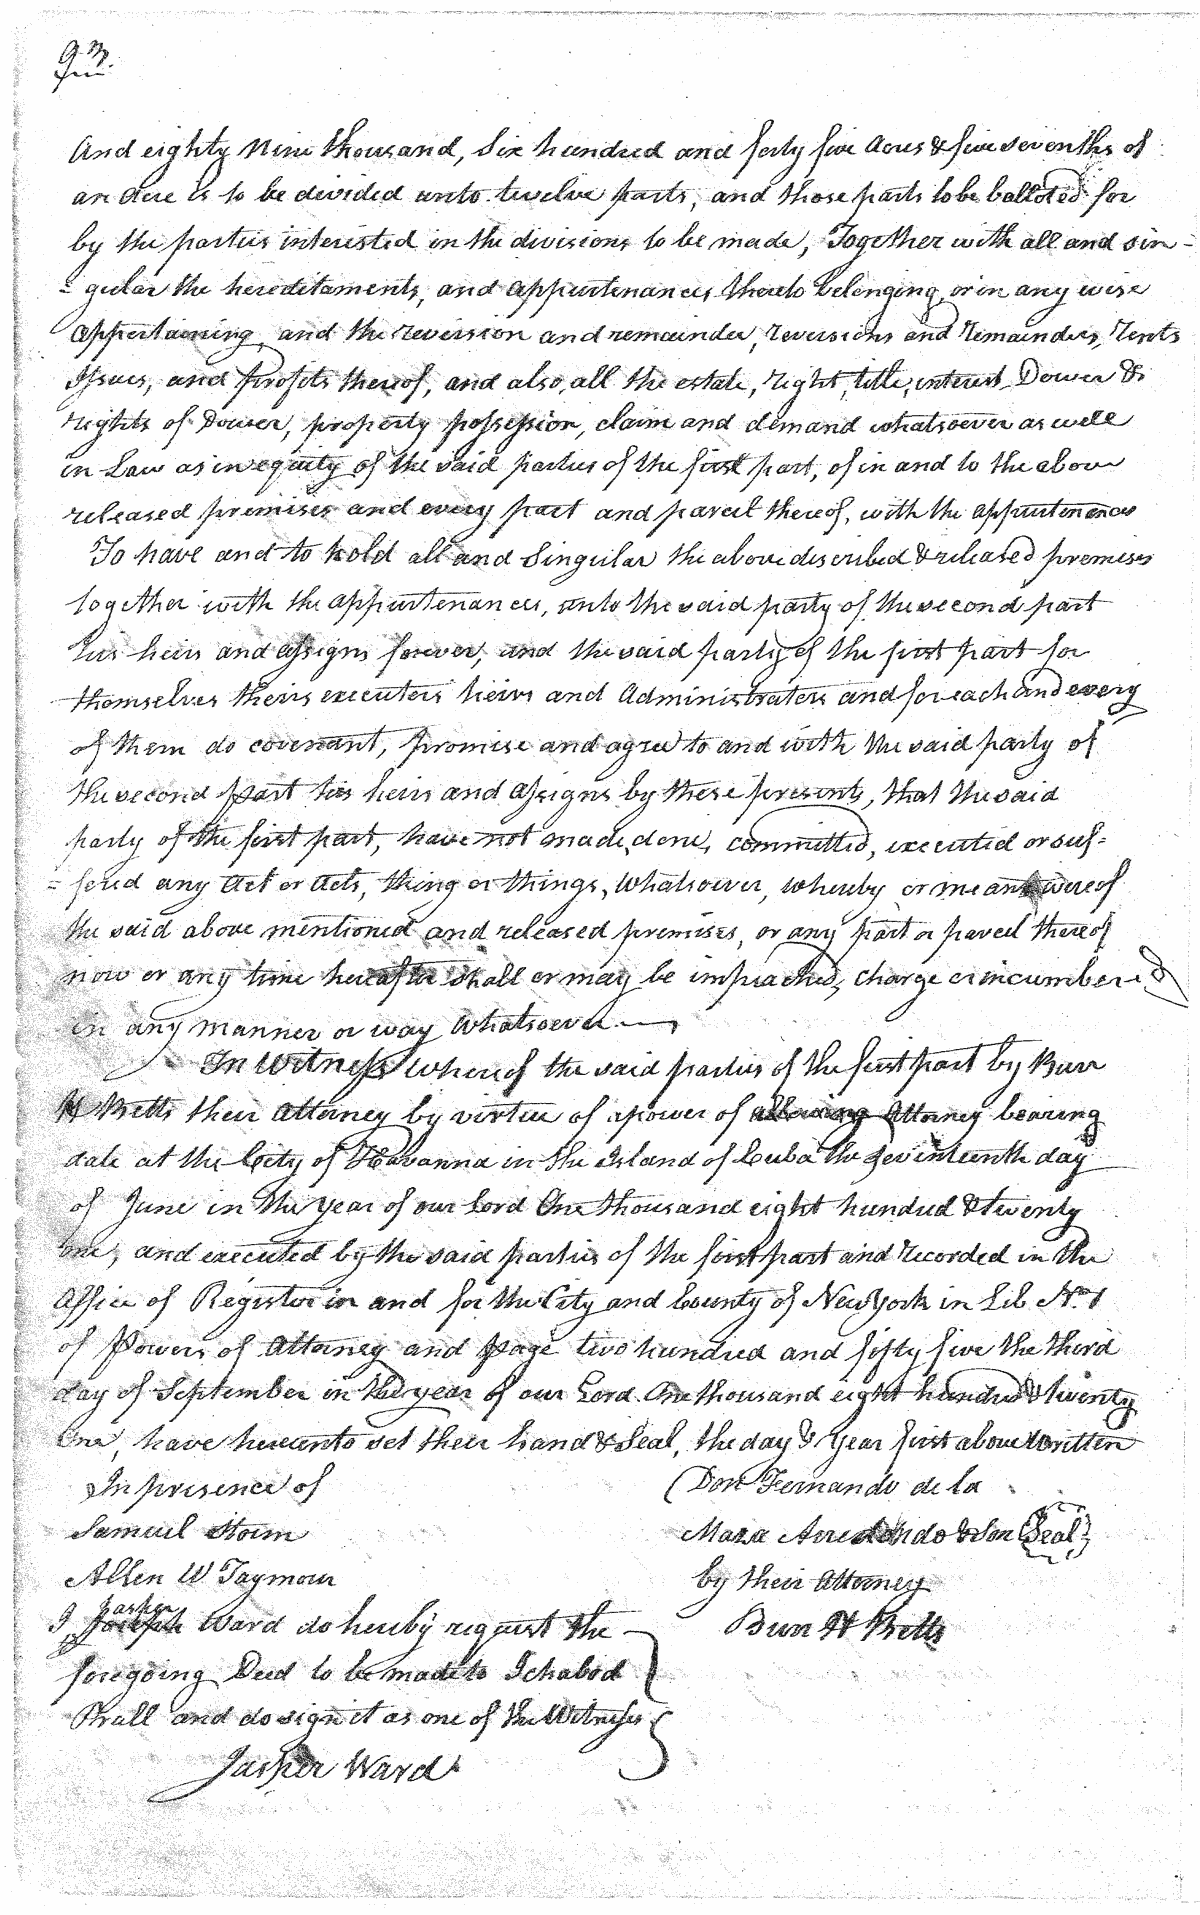 And eighty Nine thousand, Six hundred and forty five Acres & five sevenths of
an Acre is to be divided unto twelve parts, and those parts to be balloted for
by the parties interested in the divisions to be made, Together with all and sin-
-gular the hereditaments, and appurtenances thereto belonging, or in any wise
appertaining, and the reversion and remainder, reversions and remainders, Rents
Issues, and profits thereof, and also, all the estate, right, title, interest, Dower &
rights of Dower, property possession, claim and demand whatsoever as well
in Law as in equity of the said parties of the first part, of in and to the above
released premises and every part and parcel thereof, with the appurtenances
To have and to hold all and Singular the above discribed & released premises
together with the appurtenances, unto the said party of the second part
his heirs and assigns forever, and the said party of the first part for
themselves theirs executers heirs and Administraters and for each and every
of them do covenant, promise and agree to and with the said party of
the second part his heirs and assigns by these presents, that the said
party of the first part, have not made, done, committed, executed or suf=
=fered any Act or Acts, thing or things, Whatsoever, whereby or means wereof
the said above mentioned and released premises, or any part or parcel thereof
now or any time hereafter shall or may be impeached, charge or incumbered
in any manner or way whatsoever
In Witness whereof the said parties of the first part by Burr
H Betts their Attorney by virtue of a power of Attorney bearing
date at the City of Havanna in the Island of Cuba the Seventeenth day
of June in the Year of our Lord One thousand eight hundred & twenty
one, and executed by the said parties of the first part and recorded in the
Office of Register in and for the City and County of New York in Lib No 1
of Powers of Attorney and page two hundred and fifty five the third
day of September in the year of our Lord One thousand eight hundred & twenty
One, have hereunto set their hand & Seal, the day & Year first above written
In presence of
(Don Fernando de la
Samuel Storm
Maza Arredondo & Son Seal
Allen W Taymour
by their Attorney
Burr H Betts
I Jasper Ward do hereby request the
foregoing Deed to be made to Ichabod
Prall and do sign it as one of the Witnesses
Jasper Ward